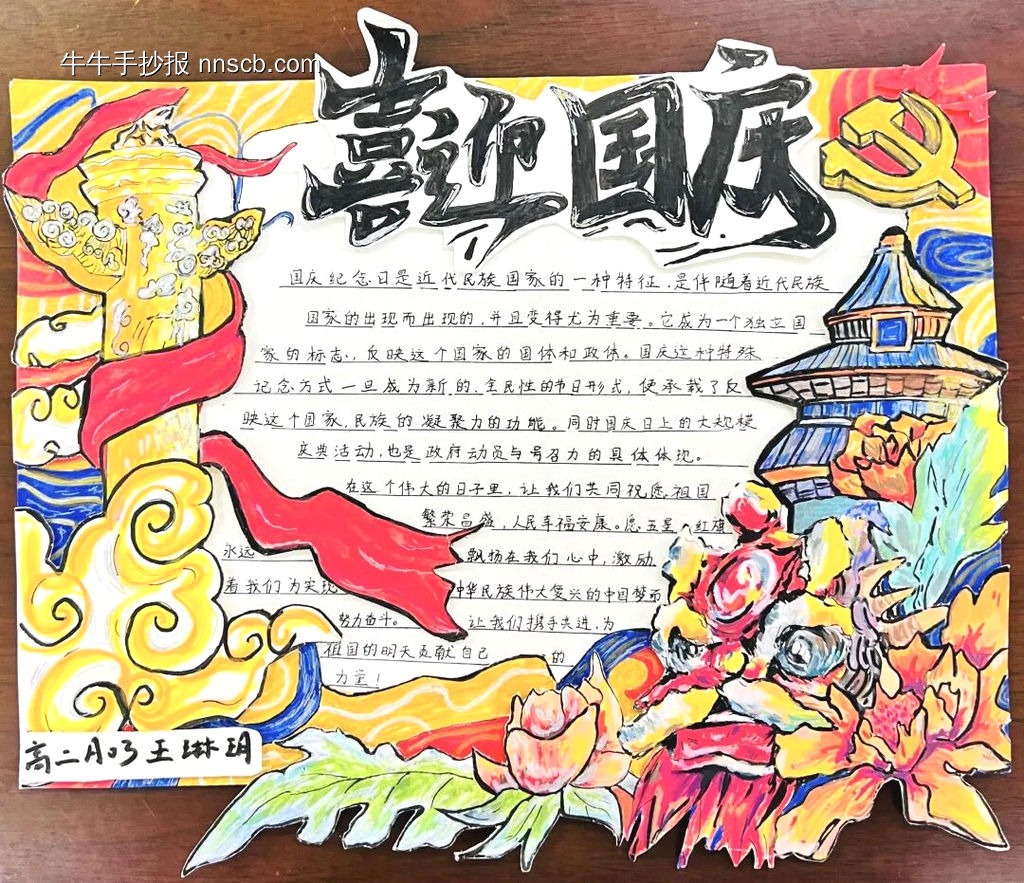 牛牛手抄报 nnscb.com
喜迎国庆
国庆纪念日是近代民族国家的一种特征，是伴随着近代民族
国家的出现而出现的，并且变得尤为重要。它成为一个独立国
家的标志，反映这个国家的国体和政体。国庆这种特殊
记念方式一旦成为新的、全民性的节日形式，便承载了反
映这个国家，民族的凝聚力的功能。同时国庆日上的大规模
庆典活动，也是政府动员与号召力的具体体现。
在这个伟大的日子里，让我们共同祝愿祖国
繁荣昌盛，人民幸福安康。愿五星红旗
永远飘扬在我们心中，激励
着我们为实现中华民族伟大复兴的中国梦而
努力奋斗。让我们携手共进，为
祖国的明天贡献自己的
力量！
高二 王琳玥